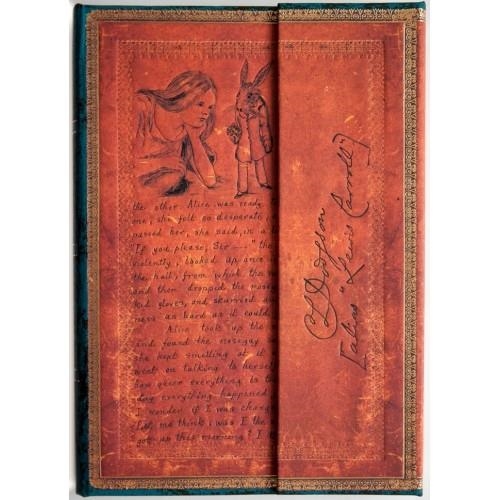 the other. Alice was ready
one, she felt so desperate,
passed her, she said, in a
"If you please, Sir —" the
violently, looked up once
the hall, from which the
and then dropped the noseg
kid gloves, and skurried aw
ness as hard as it could
Alice took up the
and found the nosegay
she kept smelling at it
went on talking to hersel
how queer everything is to
day everything happened
I wonder if I was chang
Let me think: was I the
got up this morning? I
CL Dodgson
[alias "Lewis Carroll"]